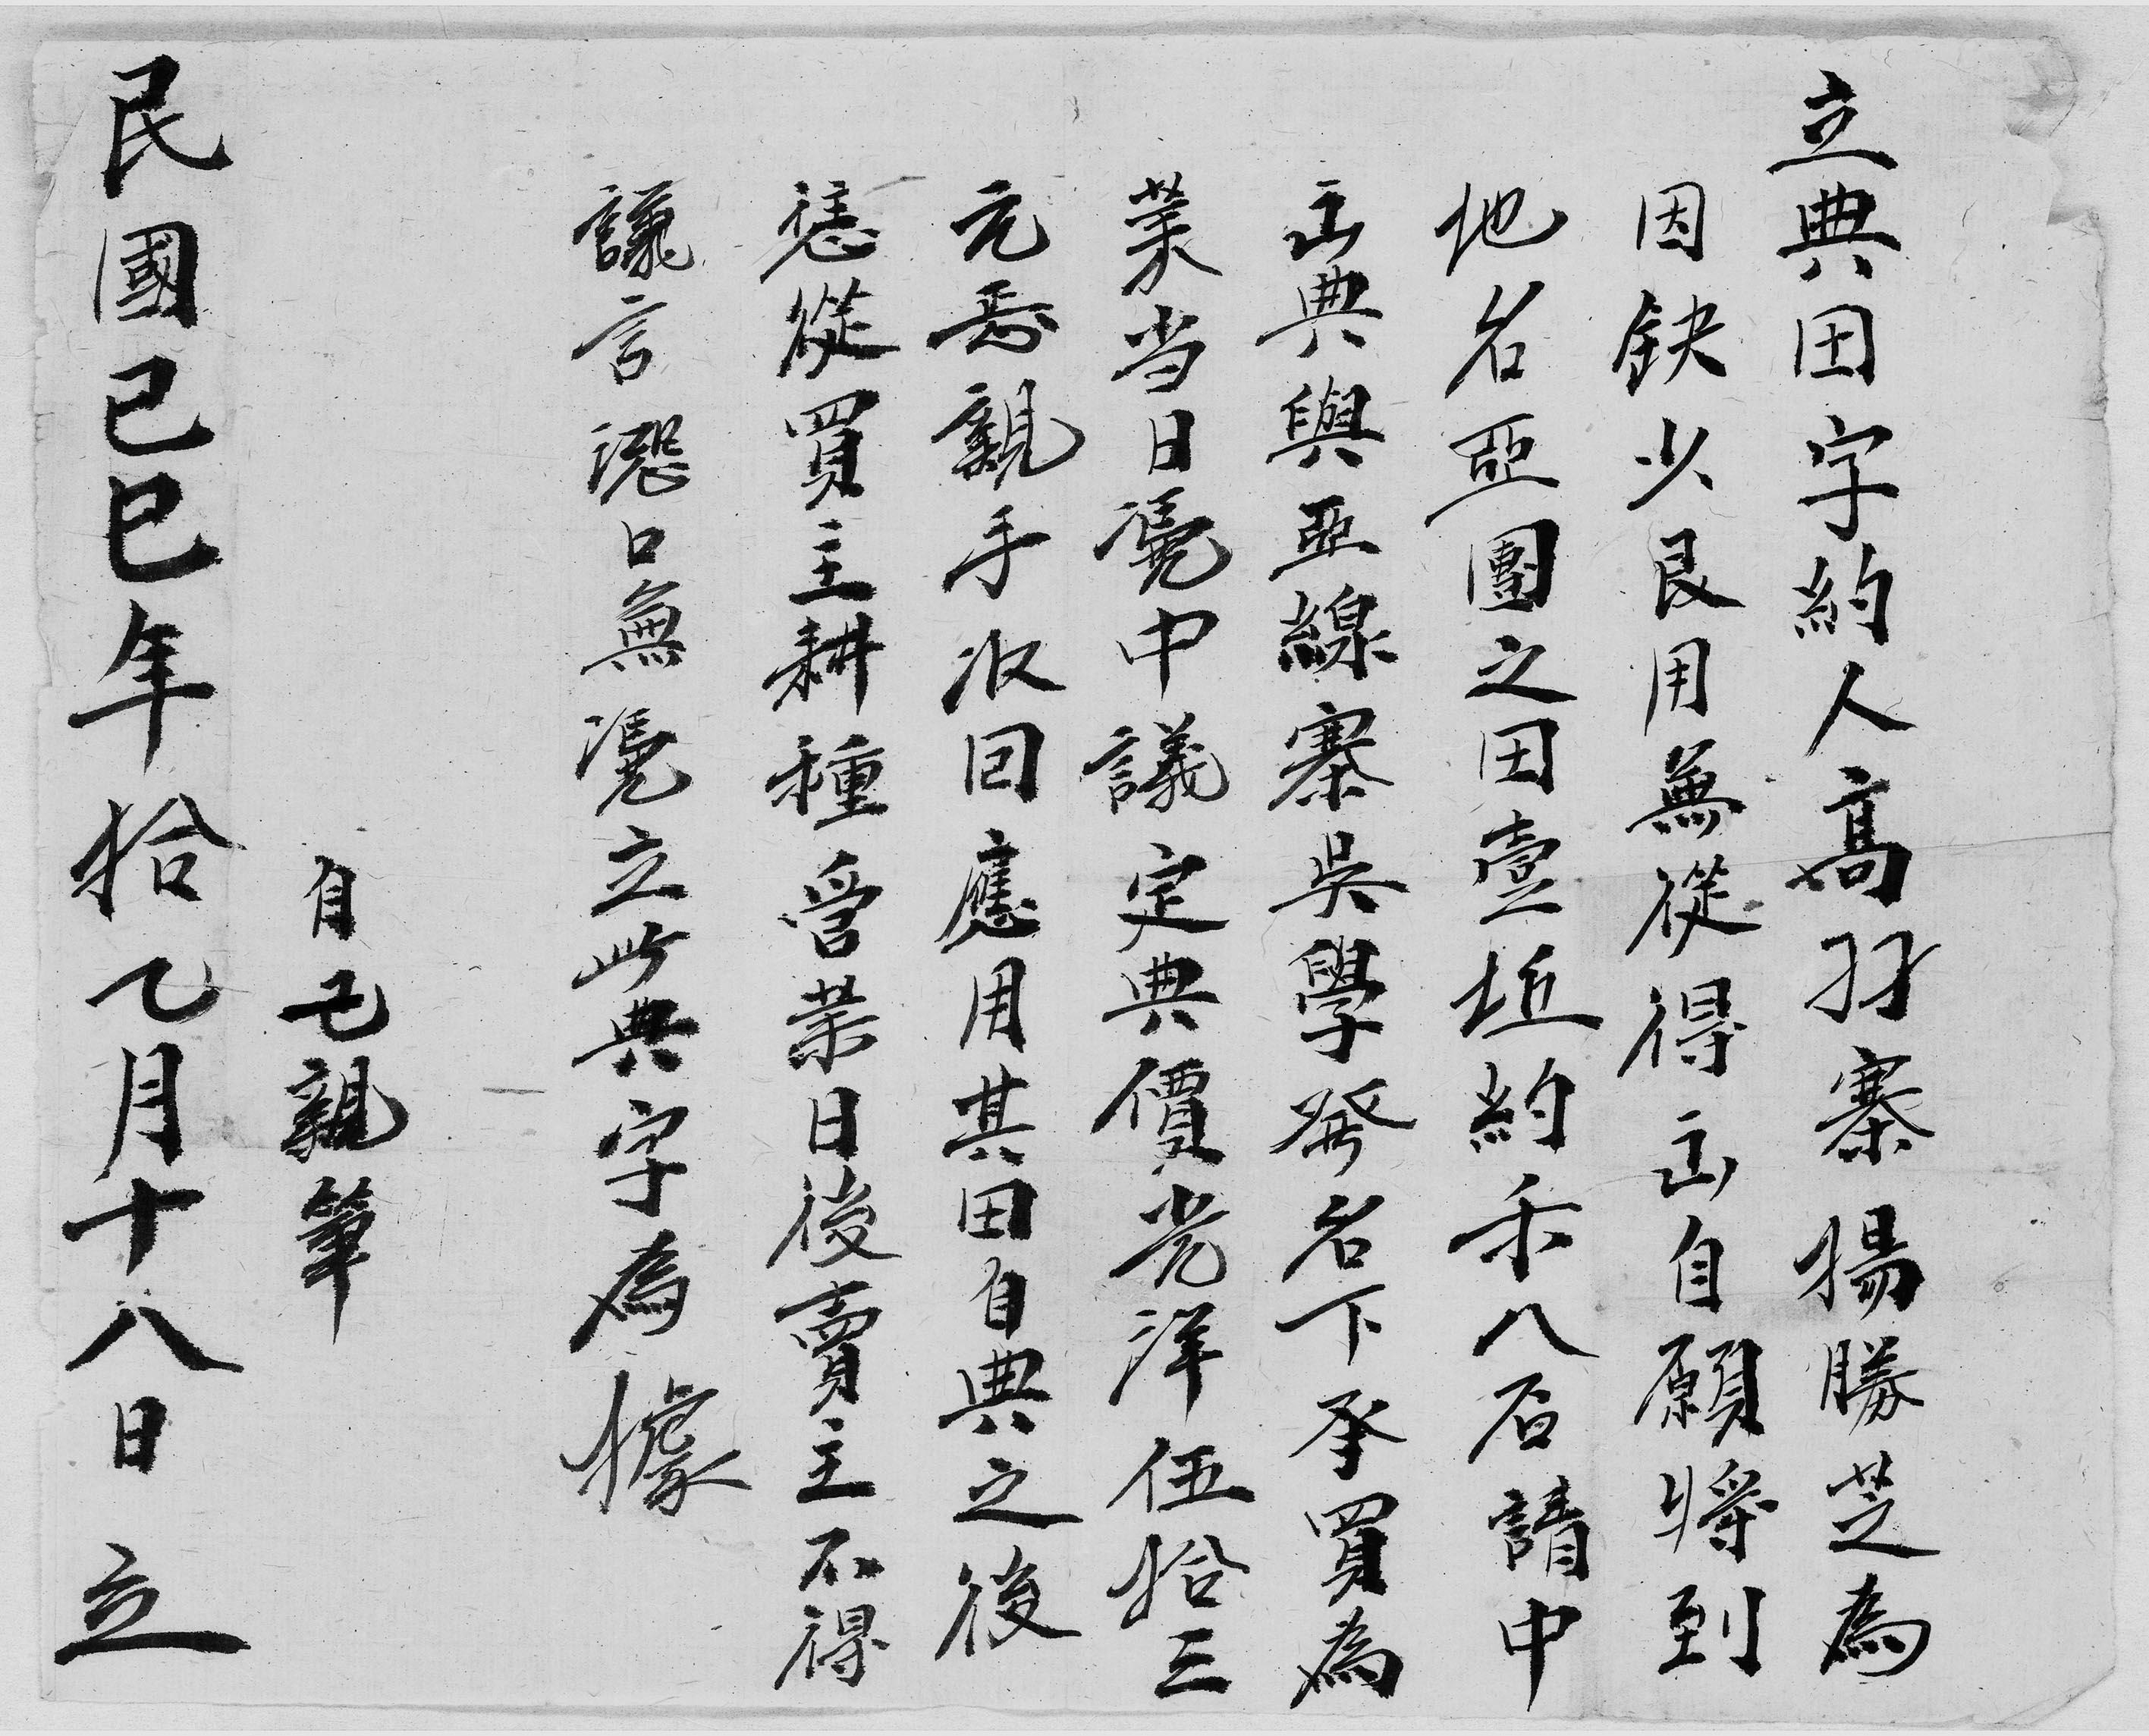 立典田字約人髙羽寨楊勝芝為
因缺少艮用無從得出自願將到
地名亞團之田壹坵約禾八石請中
出典與亞線寨吳學發名下承買為
業当日凴中議定典價光洋伍拾三
元親手收回應用其田自典之後
從買主耕種管業日後賣主不得
議言恐口無凴立此典字為據
自己親筆
民國己巳年拾乙月十八日立